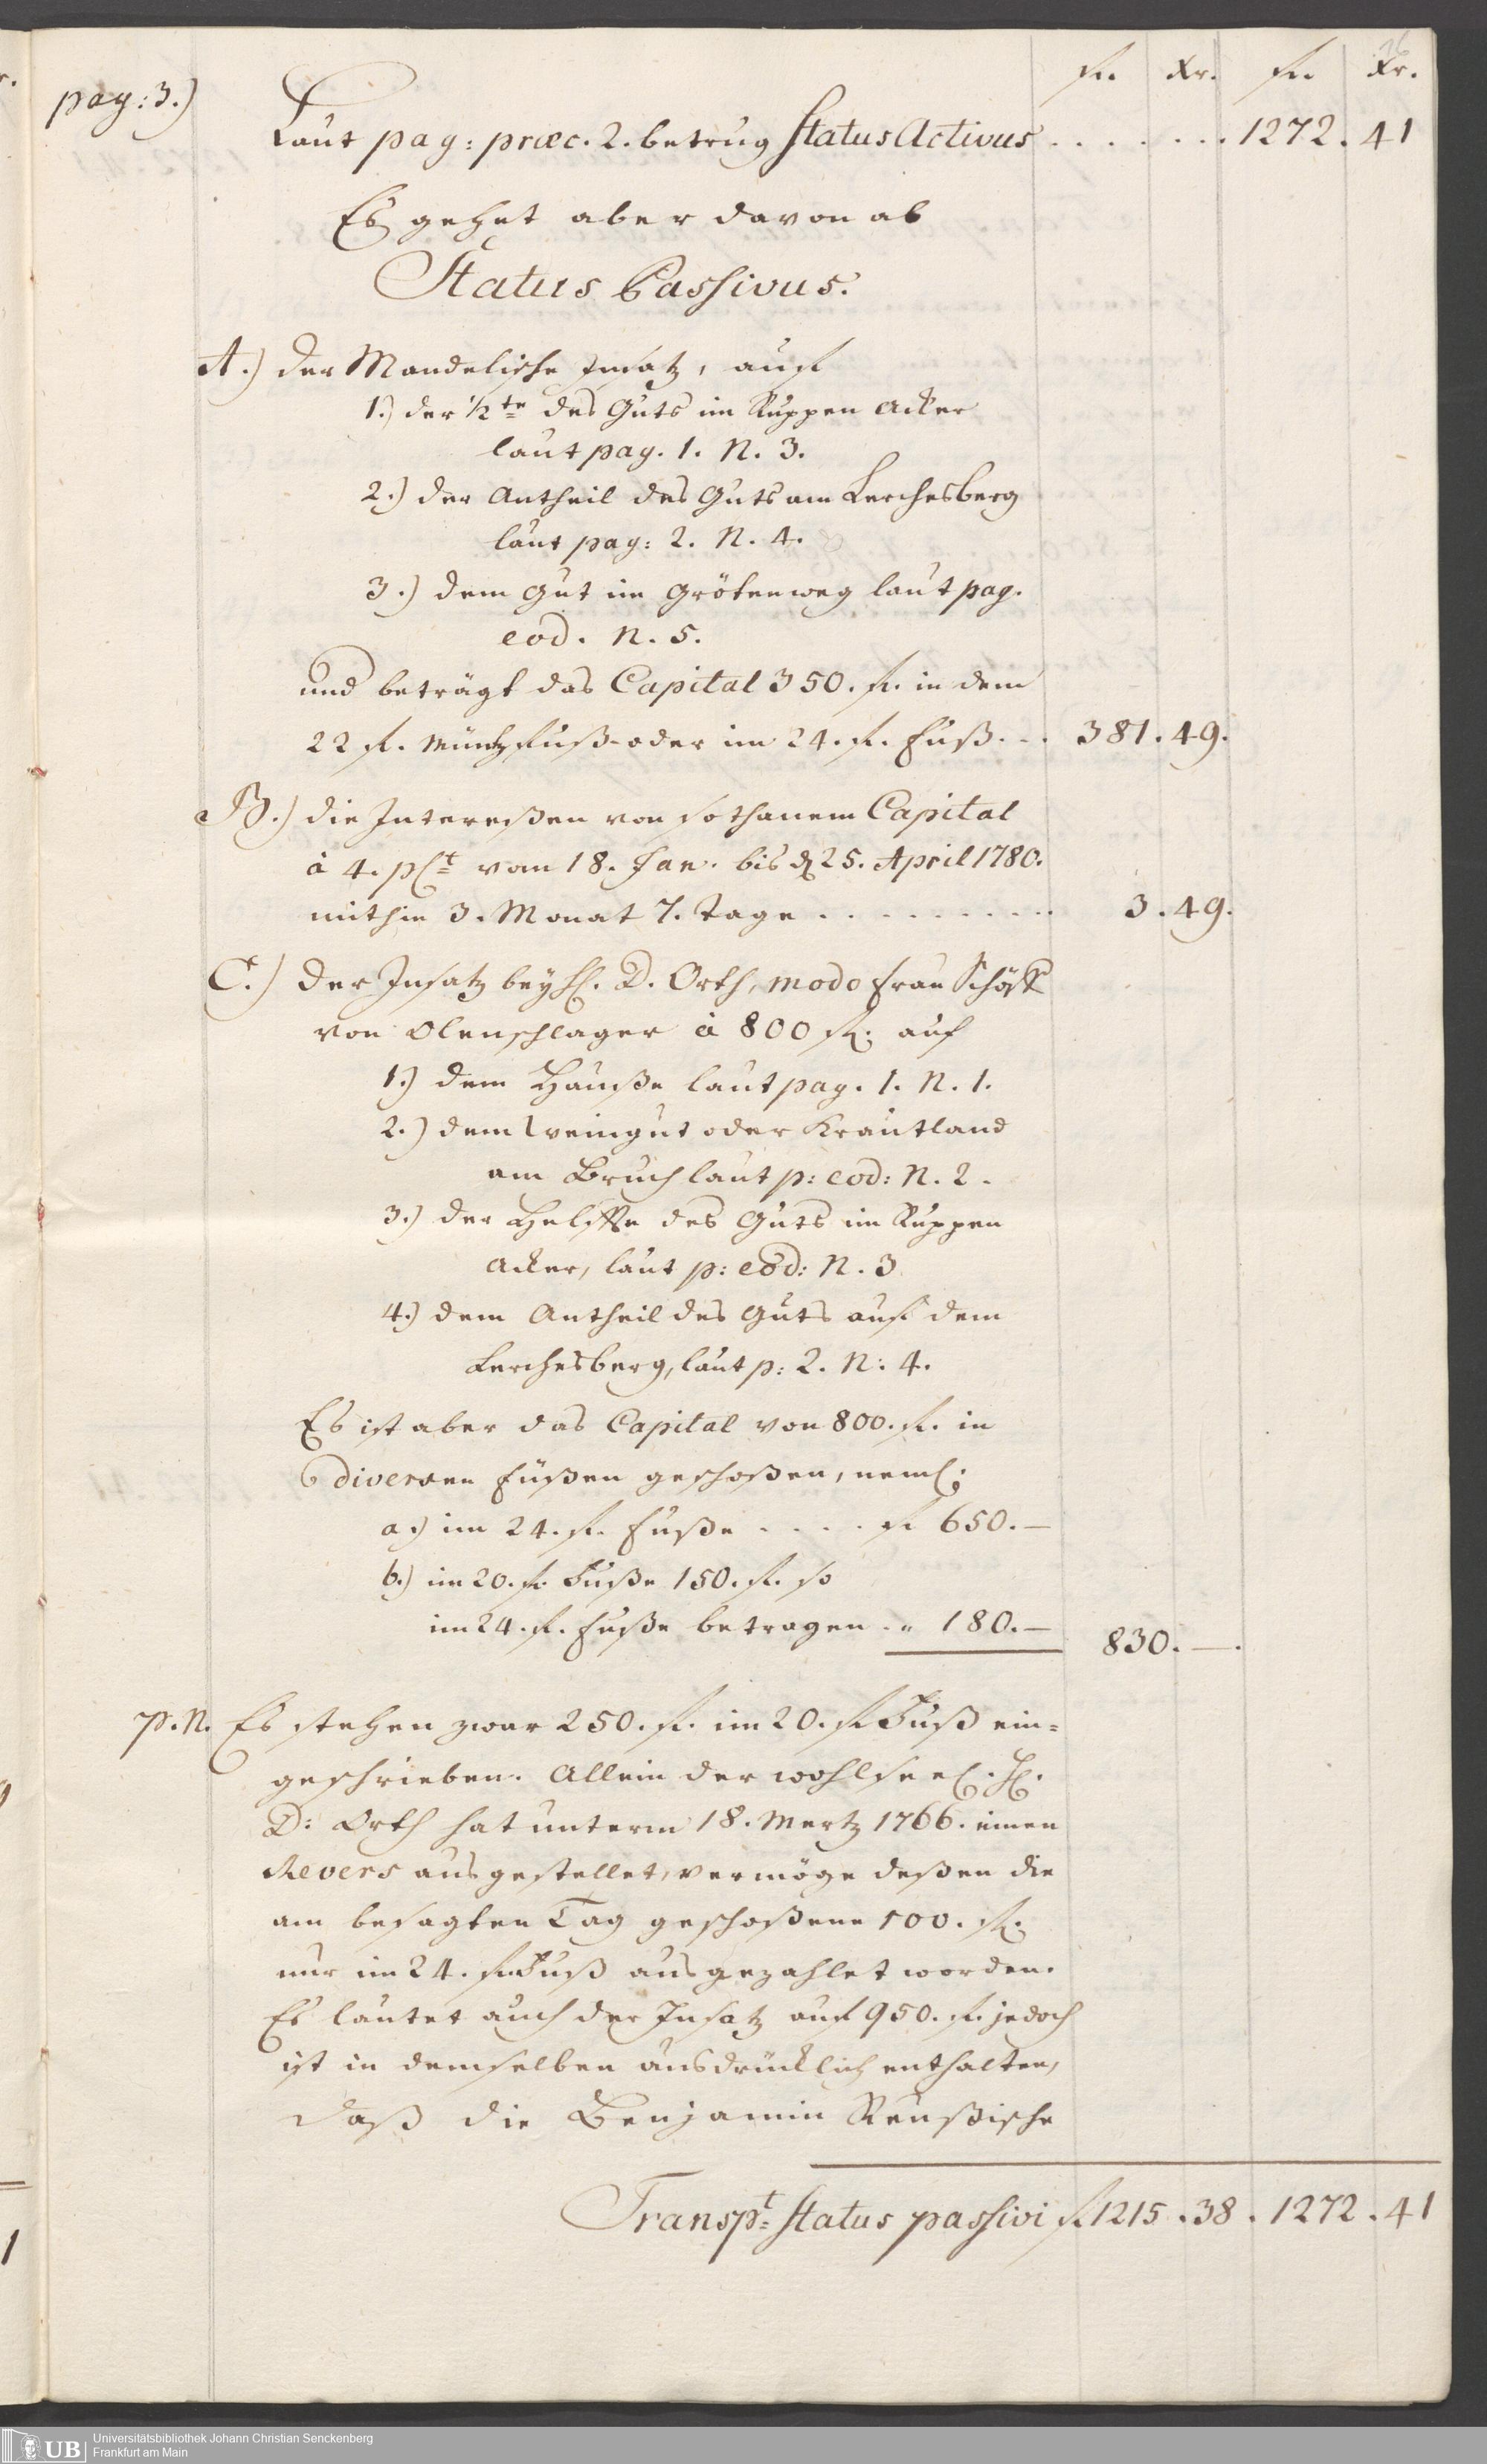 fl. Xr. fl. Xr.
pag: 3.)
Laut pag: præc. 2. betrug Status Activus . . . . . . . 1272. 41
Es gehet aber davon ab
Status Passivus.
A.) der Mandelische Insatz, auf
1.) der 1/2te des Guts im Ruppen Acker
laut pag. 1. N. 3.
2.) der Antheil des Guts am Lerchesberg
laut pag: 2. N. 4.
3.) dem Gut im Grötenweg laut pag.
eod. N. 5.
und beträgt das Capital 350. fl. in dem
22 fl. Müntzfuß oder im 24. fl. Fuß . . . 381. 49.
B.) die Intereßen von sothanem Capital
à 4. pCt vom 18. Jan. bis d 25. April 1780.
mithin 3. Monat 7. Tage . . . . . . . . . 3. 49.
C.) Der Insatz bey H. D. Orth, modo Frau Schöff
von Olenschlager à 800 fl. auf
1.) dem Hauße laut pag. 1. N. 1.
2.) dem Weingut oder Krautland
am Bruch laut p: eod: N. 2.
3.) der Helffte des Guts im Ruppen
Acker, laut p: eod: N. 3
4.) dem Antheil des Guts auf dem
Lerchesberg, laut p: 2. N: 4.
Es ist aber das Capital von 800. fl. in
diversen Füßen geschoßen, neml:
a.) im 24. fl. Fuße . . . . fl 650. —
b.) im 20. fl. Fuße 150. fl. so
im 24. fl. Fuße betragen . " 180. — 830. —.
P. N. Es stehen zwar 250. fl. im 20. fl Fuß ein=
geschrieben. Allein der wohlseel. H.
D: Orth hat unterm 18. Mertz 1766. einen
Revers ausgestellet, vermöge deßen die
am besagten Tag geschoßene 100. fl.
nur im 24. fl. Fuß ausgezahlet worden.
Es lautet auch der Insatz auf 950. fl. jedoch
ist in demselben ausdrücklich enthalten,
daß die Benjamin Reußische
Transpt Status passivi fl 1215. 38. 1272. 41
UB Universitätsbibliothek Johann Christian Senckenberg
Frankfurt am Main